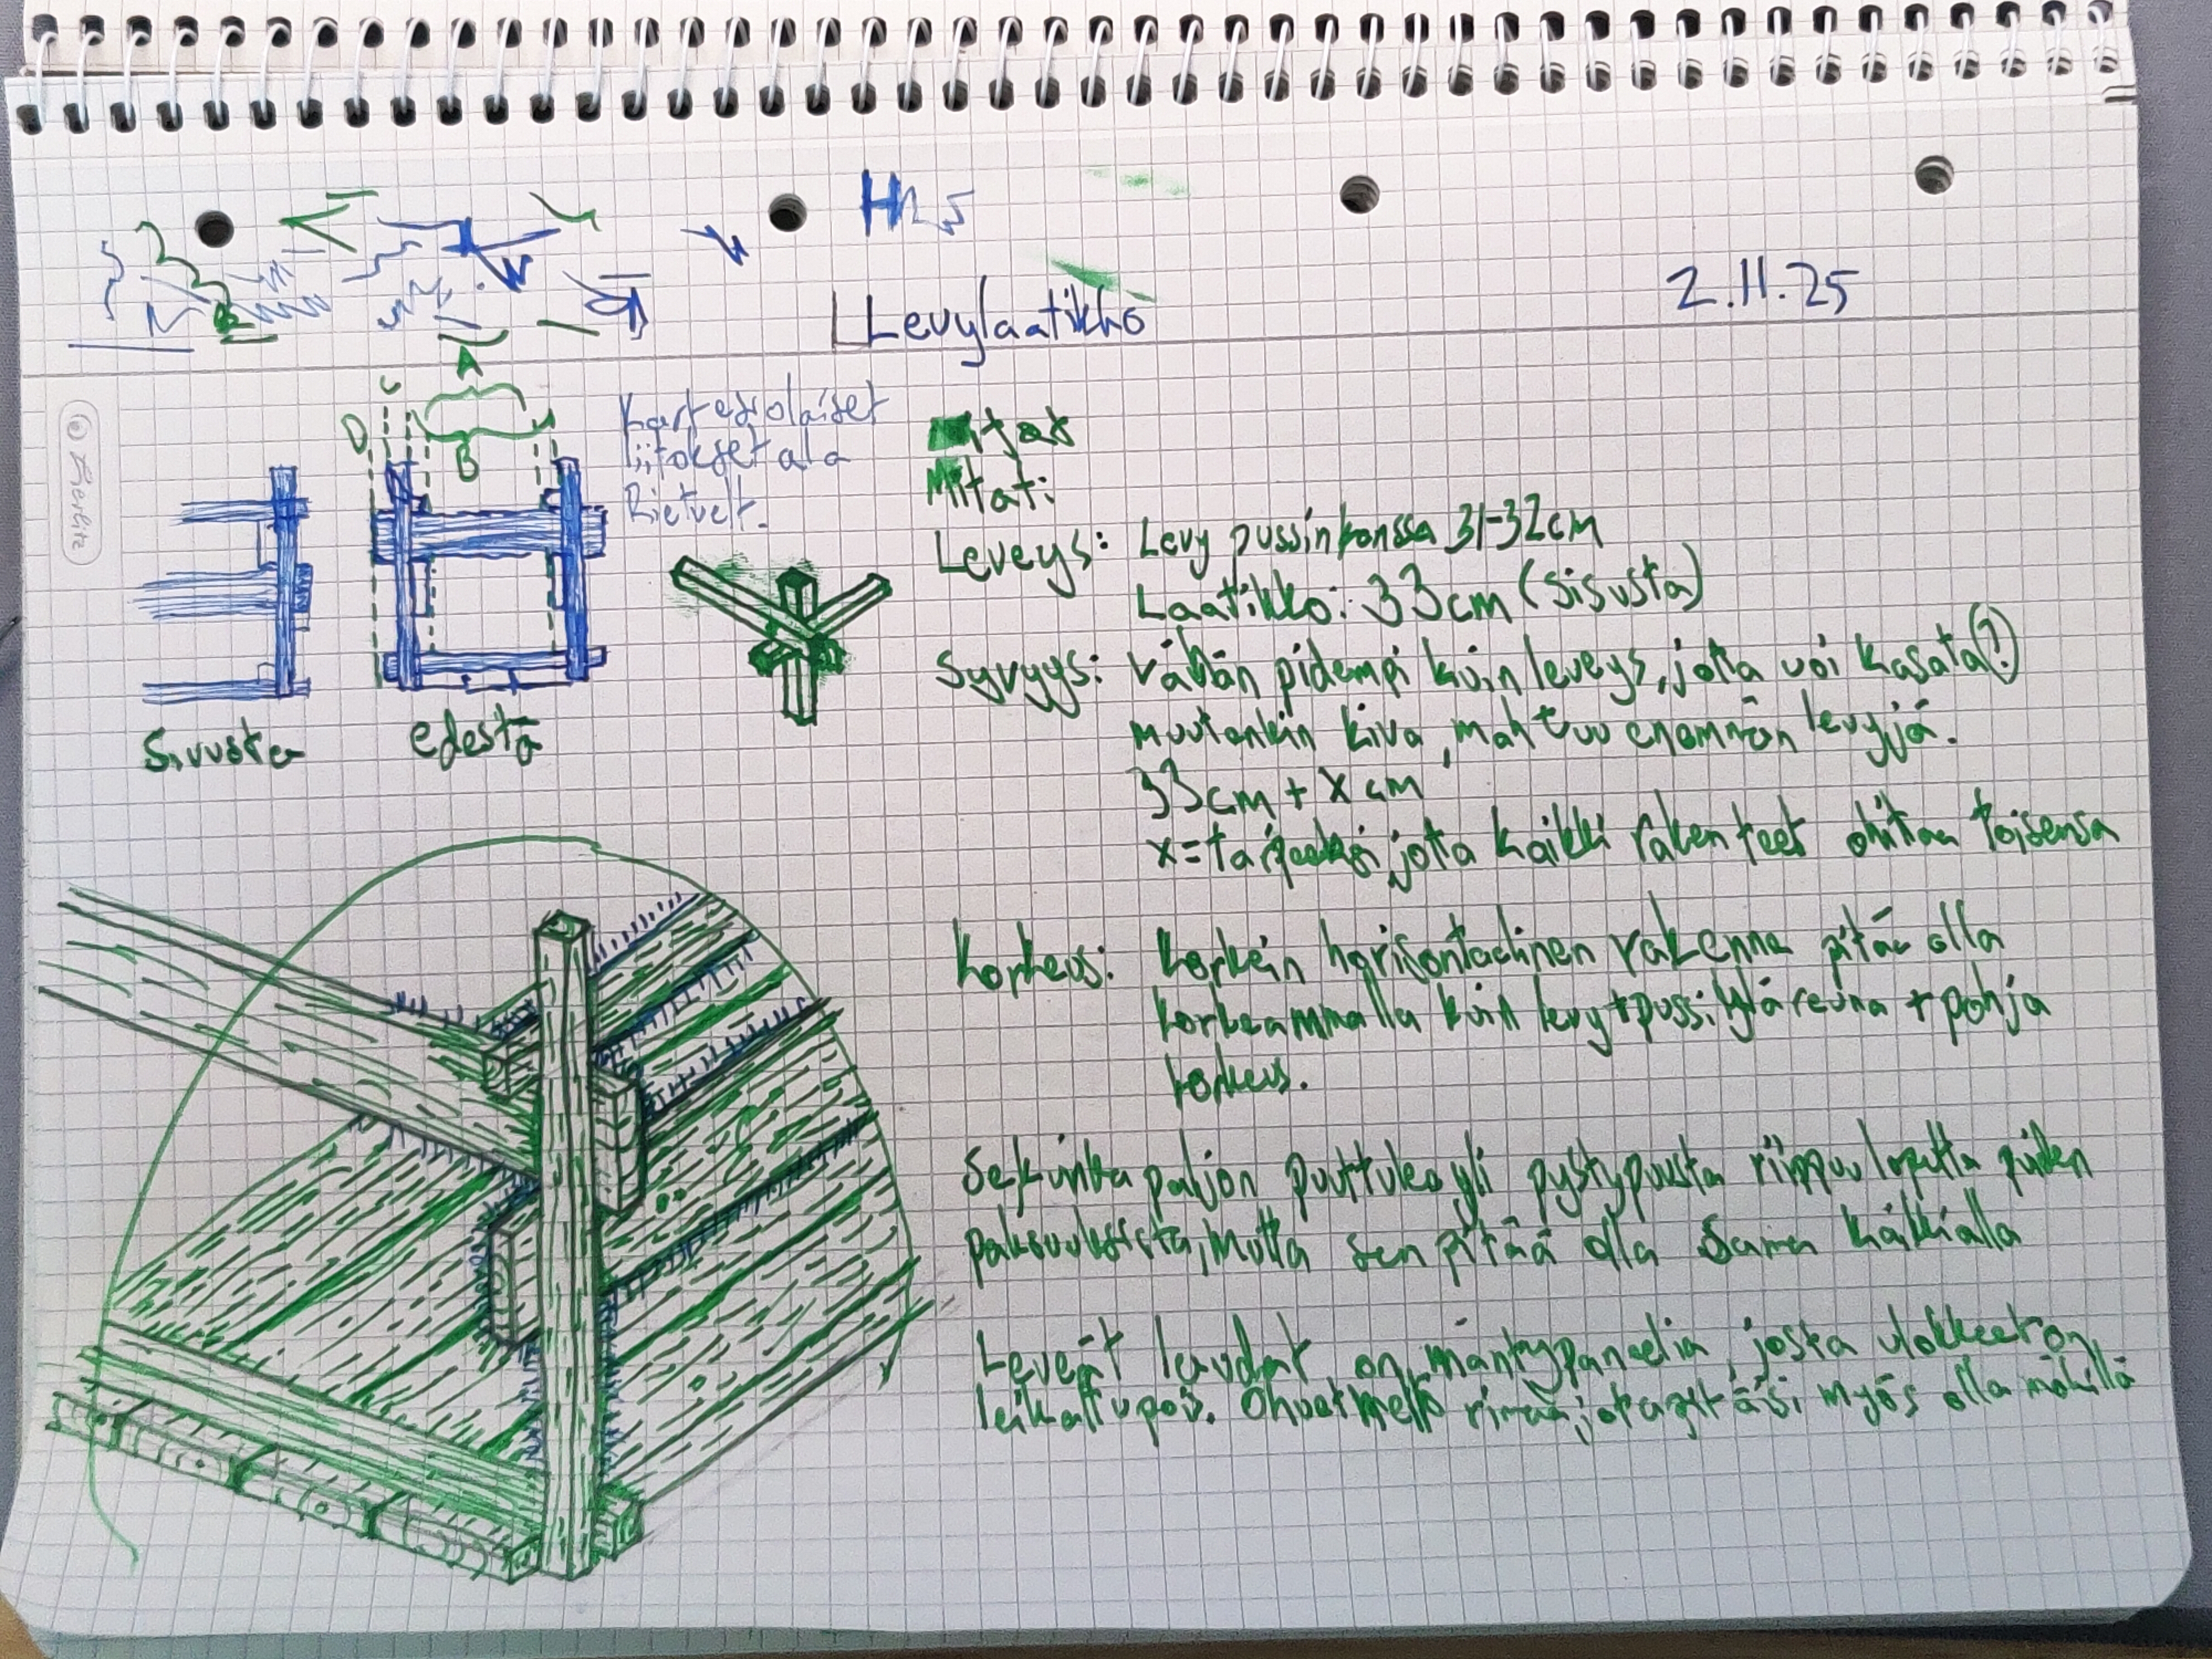 2.11.25
Levylaatikko
A
C
D
B
Kartesiolaiset
liitokset ala
Rietvelt.
Sivusta
edestä
Herlitz
Mitat:
Leveys: Levy pussin kanssa 31-32cm
Laatikko: 33cm (sisusta)
Syvyys: vähän pidempi kuin leveys, jotta voi kasata(!)
muutenkin kiva, mahtuu enemmän levyjä.
33cm + x cm
x = tarpeeksi, jotta kaikki rakenteet ohittaa toisensa
Korkeus: Korkein horisontaalinen rakenne pitää olla
korkeammalla kuin levy+pussi yläreuna + pohja
korkeus.
Se kuinka paljon puut tulee yli pystypuusta riippuu lopulta puiden
paksuuksista, mutta sen pitää olla sama kaikkialla
Leveät laudat on mäntypaneelia, josta ulokkeet on
leikattu pois. Ohuet rimaa, jota pitäisi myös olla mökillä